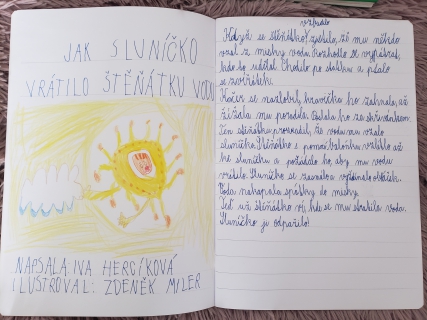 JAK SLUNÍČKO
VRÁTILO ŠTĚŇÁTKU VODU
NAPSALA: IVA HERCÍKOVÁ
ILUSTROVAL: ZDENĚK MILER
vzbudilo
Když se štěňátko, zjistilo, že mu někdo
vzal z misky vodu. Rozhodlo se vypátrat,
kdo to udělal. Chodilo po statku a ptalo
se zvířátek.
Kočur se nazlobil, kravička ho zahnala, až
žížala mu poradila. Poslala ho za skřivánkem.
Ten štěňátku prozradil, že vodu mu vzalo
sluníčko. Štěňátko s pomocí balónku vzlétlo až
ke sluníčku a požádalo ho, aby mu vodu
vrátilo. Sluníčko se zasmálo a vyždímalo obláček.
Voda nakapala zpátky do misky.
Teď už štěňátko ví, kde se mu ztratila voda.
Sluníčko ji odpařilo!